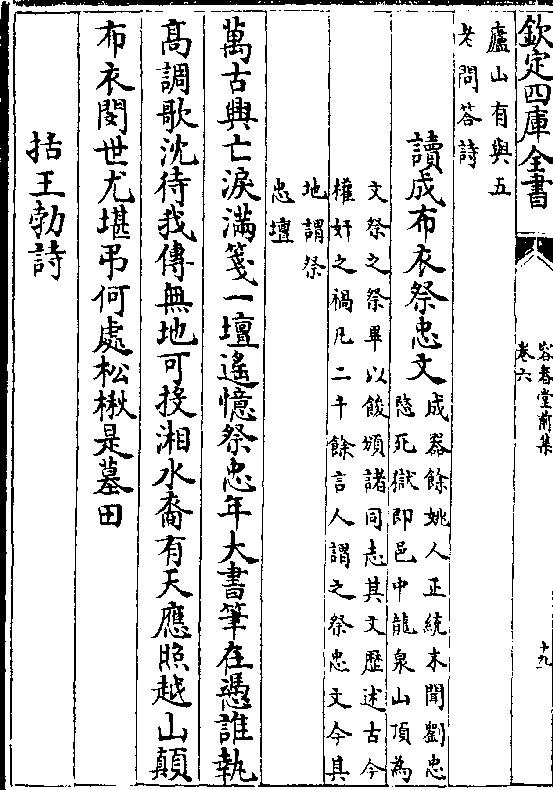 欽定四庫全書
容春堂前集
卷六
十九
廬山有與五
老問答詩
讀成布衣祭忠文
成器餘姚人正統末聞劉忠
愍死獄即邑中龍泉山頂為
文祭之祭畢以餕頒諸同志其文歷述古今
權奸之禍凡二千餘言人謂之祭忠文今其
地謂祭
忠壇
萬古興亡淚滿箋一壇遙憶祭忠年大書筆在憑誰執
髙調歌沈待我傳無地可投湘水裔有天應照越山顛
布衣閔世尤堪弔何處松楸是墓田
括王勃詩